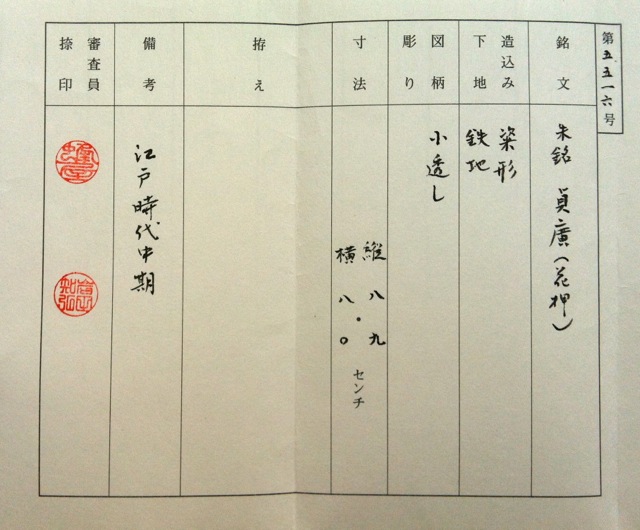 第五五一六号
銘文
朱銘 貞廣(花押)
造込み
下地
変形
鉄地
図柄
彫り
小透し
寸法
縦 八・九
横 八・〇
センチ
拵え
備考
江戸時代中期
審査員
捺印